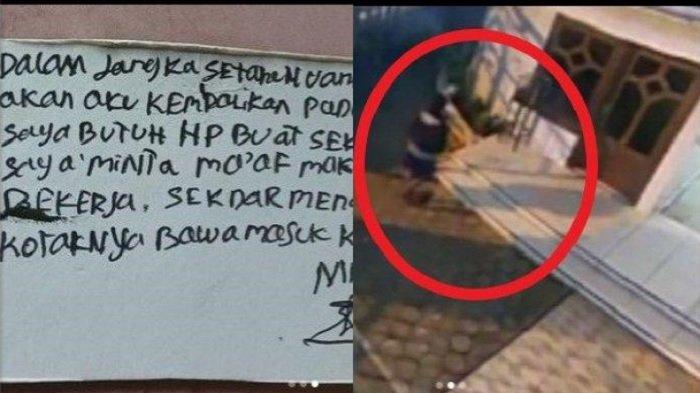 DALAM JANGKA SETAHUN UAN
AKAN AKU KEMBALIKAN PAD
SAYA BUTUH HP BUAT SEK
SAYA MINTA MA'AF MAK
BEKERJA, SEKDAR MENG
KOTAKNYA BAWA MASUK K